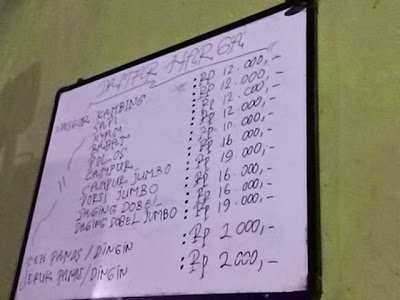 DAFTAR HARGA
NASGOR KAMBING : Rp 12.000,-
SAPI : Rp 12.000,-
AYAM : Rp 12.000,-
BABAT : Rp 12.000,-
POLOS : Rp 10.000,-
CAMPUR : Rp 16.000,-
CAMPUR JUMBO : Rp 19.000,-
PORSI JUMBO : Rp 16.000,-
DAGING DOBEL : Rp 16.000,-
DAGING DOBEL JUMBO : Rp 19.000,-
TEH PANAS/DINGIN : Rp 2.000,-
JERUK PANAS/DINGIN : Rp 2.000,-